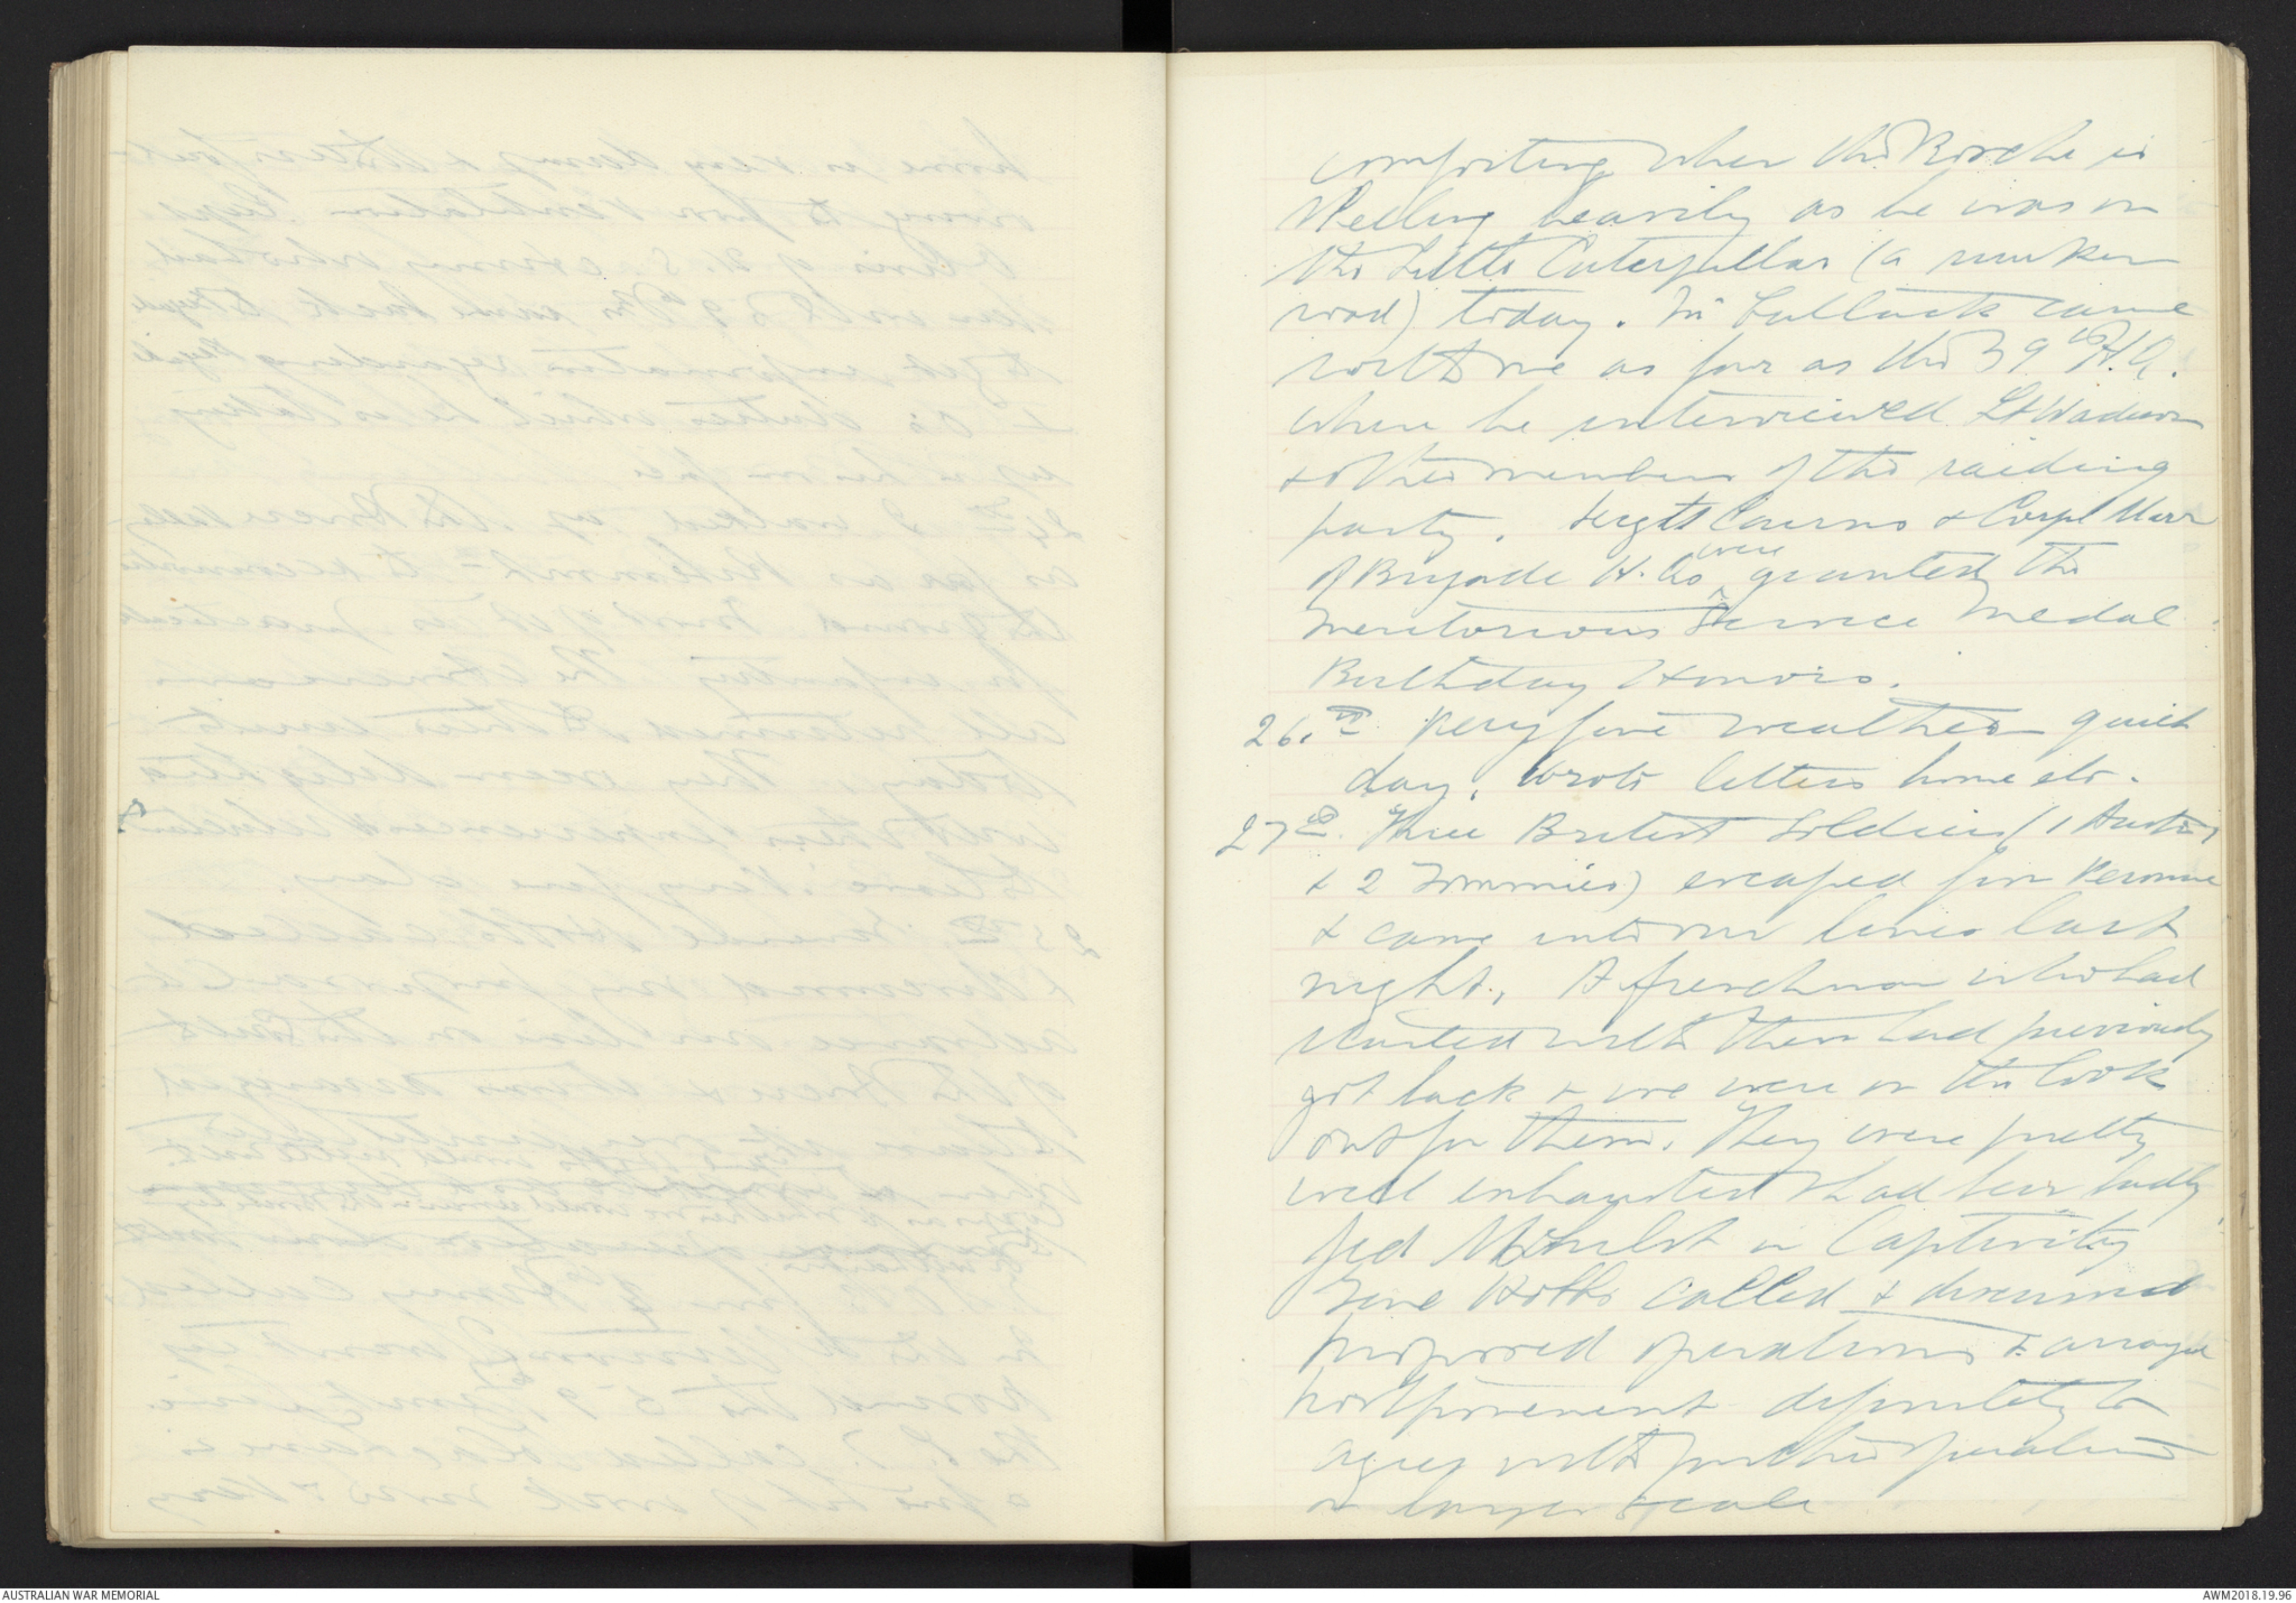 comforting when the Bosche is
shelling heavily as he was in
the Little Caterpillar (a sunken
road) today. Mr Cutlack came
with me as far as the 59th H.Q.
where he interviewed Lt
& other members of the raiding
party. Sergt Cairns & Corpl Marr
of Brigade H.Qrs were granted the
Meritorious Service Medal
Birthday Honors.
26.th Very fine weather quiet
day. Wrote letters home etc.
27th. Three British Soldiers (1 Austn
& 2 Tommies) escaped from Peronne
& came into our lines last
night. A frenchman who had
started with them had previously
got back & we were on the look
out for them. They were pretty
well exhausted & had been badly
fed Whilst in Captivity
Gene Hobbs called & discussed
proposed operations & arranged
postponement definitely to
agree with further operations
on larger scale
AUSTRALIAN WAR MEMORIAL
AWM2018.19.96